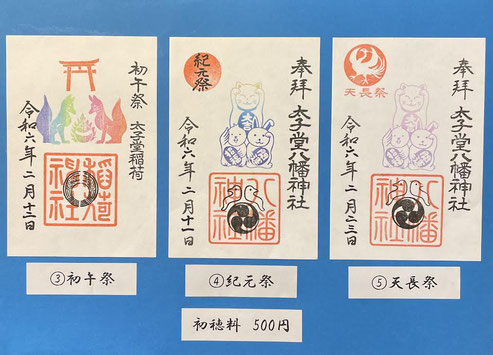 初午祭 太子堂稲荷
稲荷
神社
令和六年 二月十二日
③初午祭
紀元祭
奉拝 太子堂八幡神社
八幡
神社
令和六年 二月十一日
④紀元祭
天長祭
奉拝 太子堂八幡神社
八幡
神社
令和六年 二月二三日
⑤天長祭
初穂料 500円